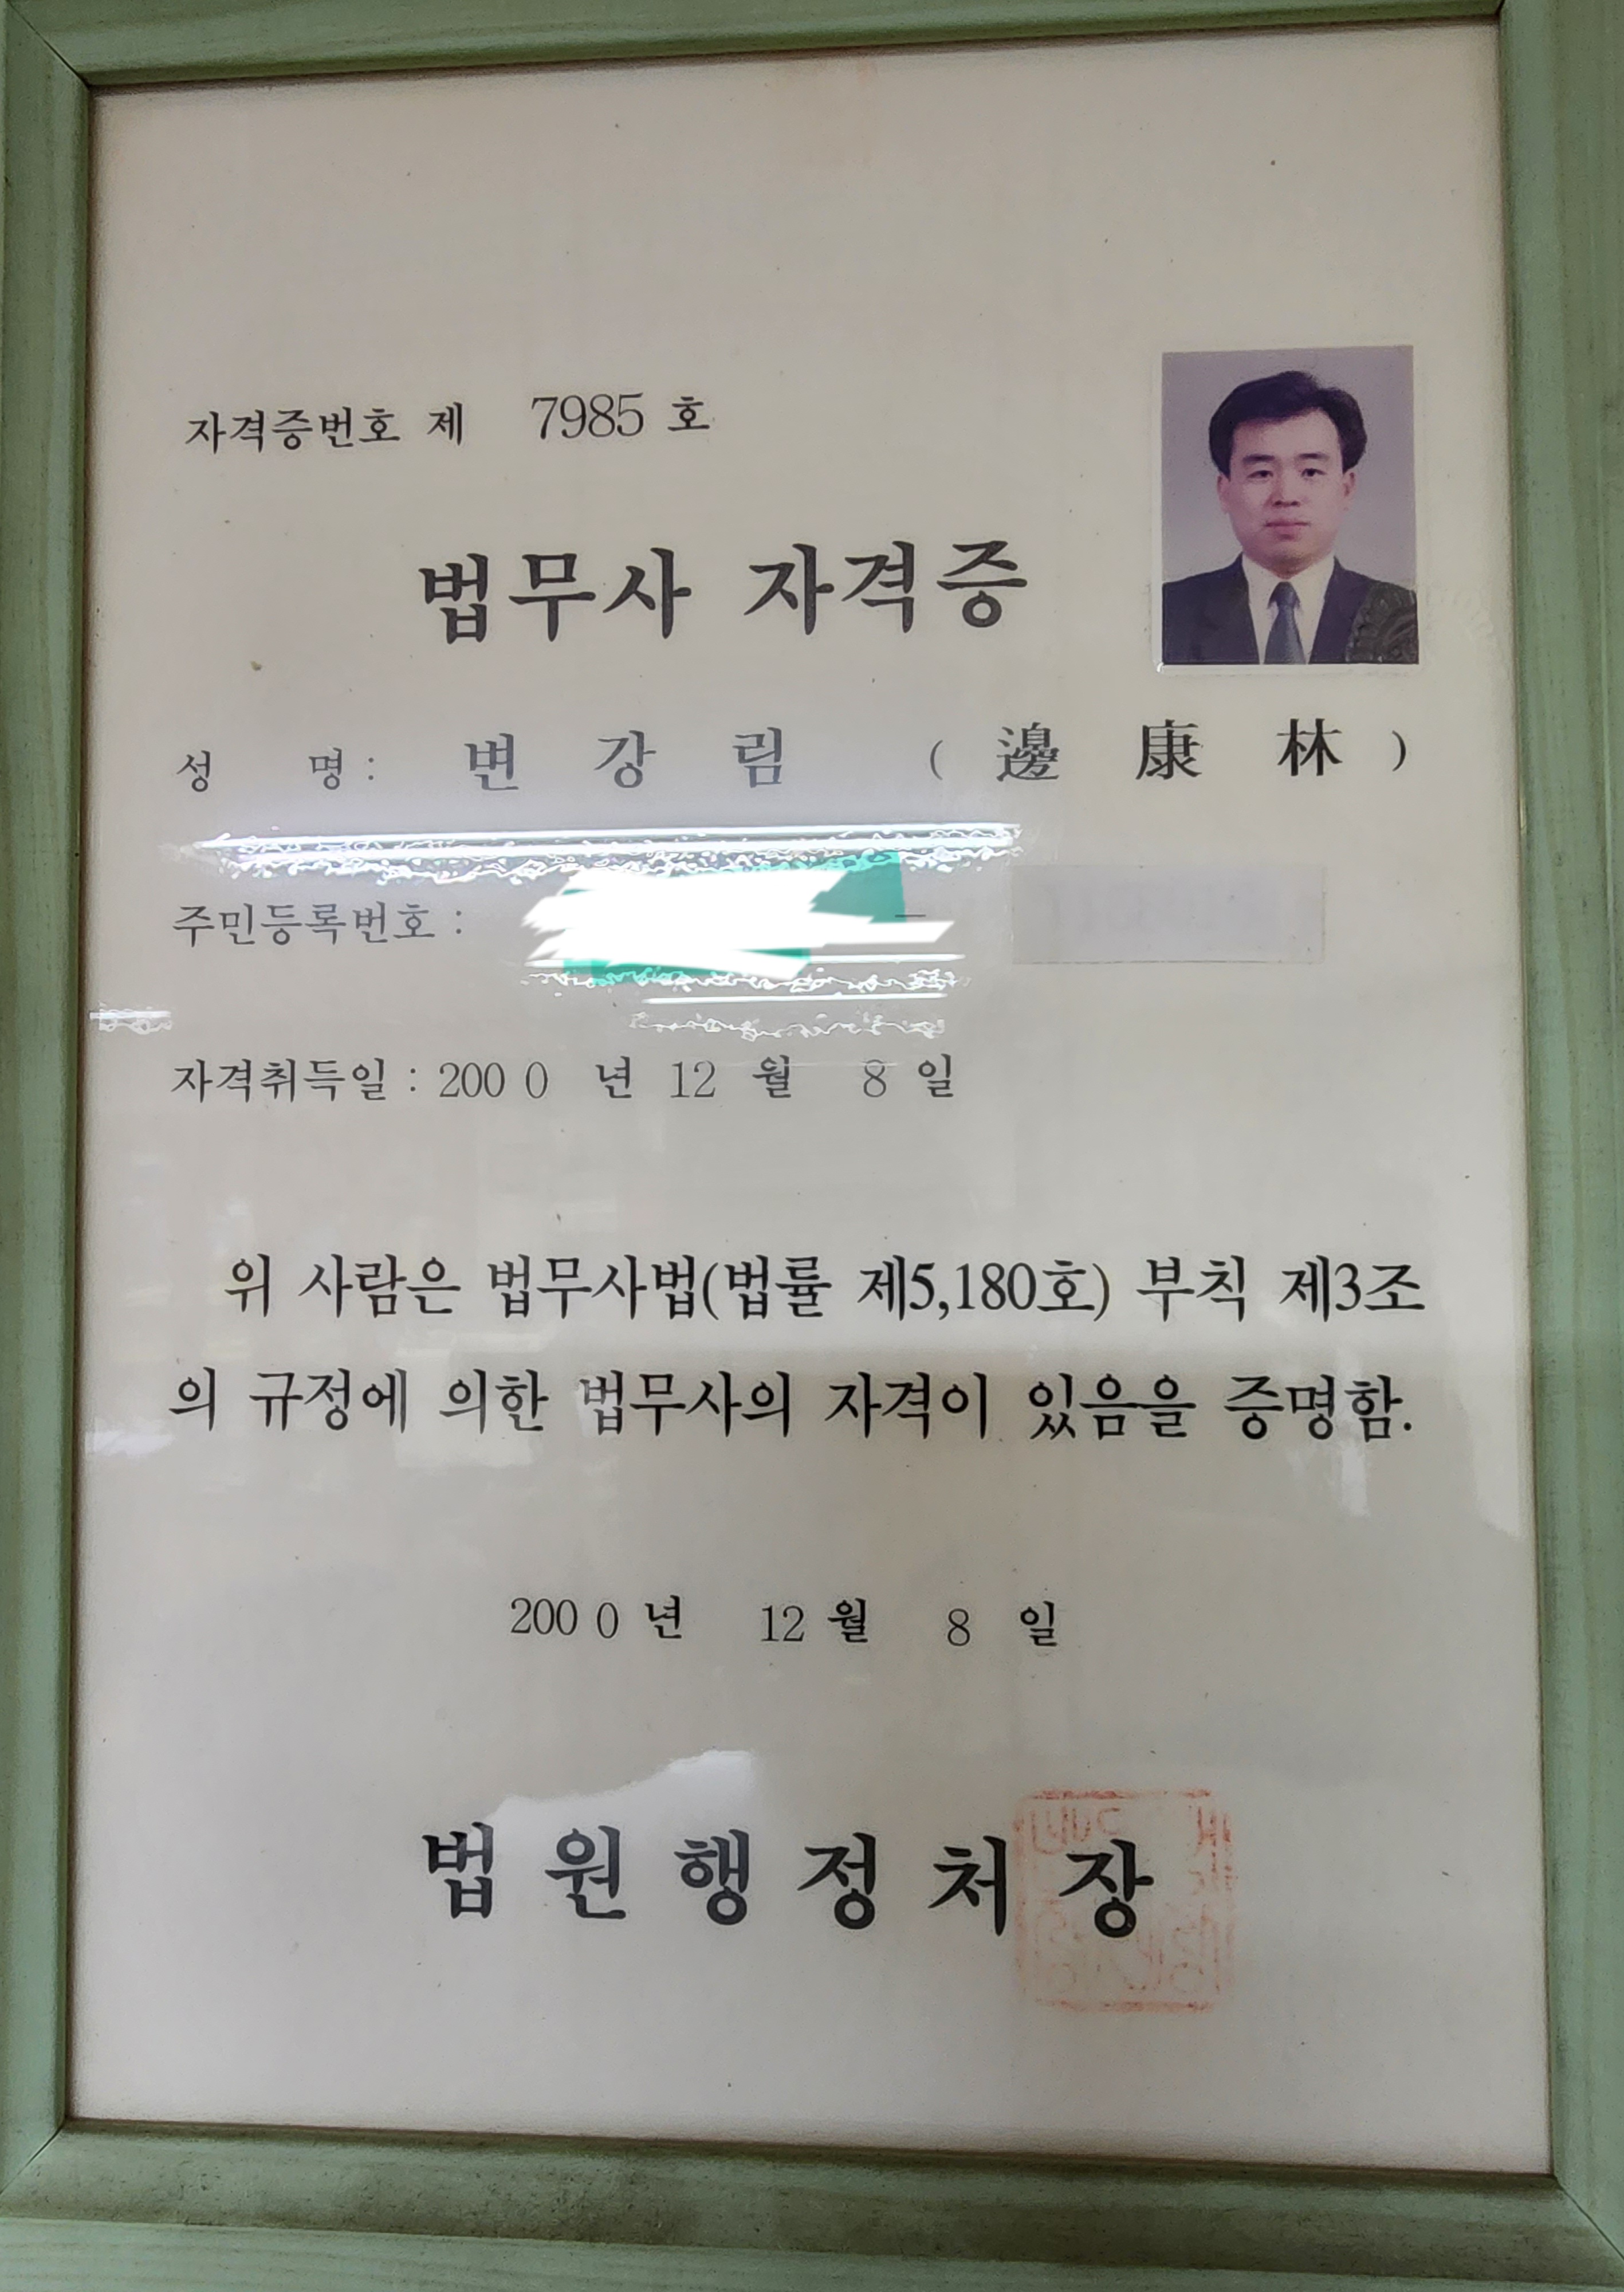 자격증번호 제 7985 호
법무사 자격증
성 명 : 변 강 림 ( 邊 康 林 )
주민등록번호 : –
자격취득일 : 2000 년 12 월 8 일
위 사람은 법무사법(법률 제5,180호) 부칙 제3조
의 규정에 의한 법무사의 자격이 있음을 증명함.
2000 년 12 월 8 일
법원행정처장